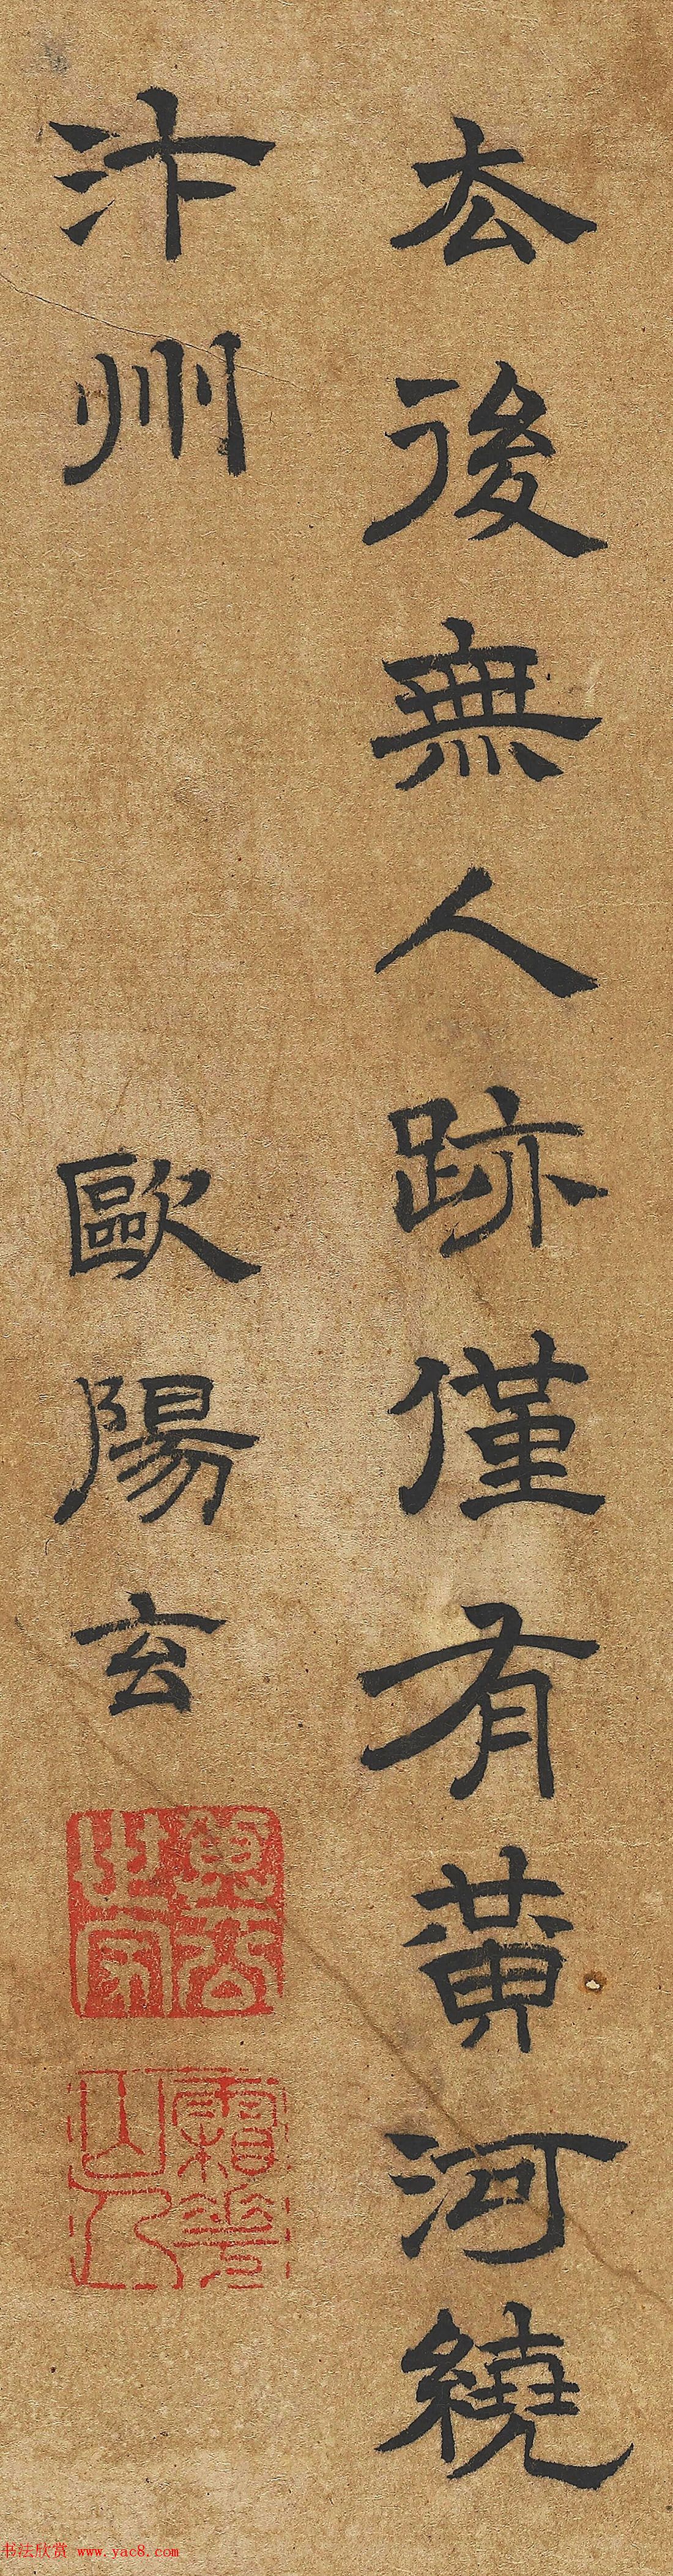 去後無人跡僅有黃河繞
汴州 歐陽玄
霜華山人
书法欣赏 www.yac8.com